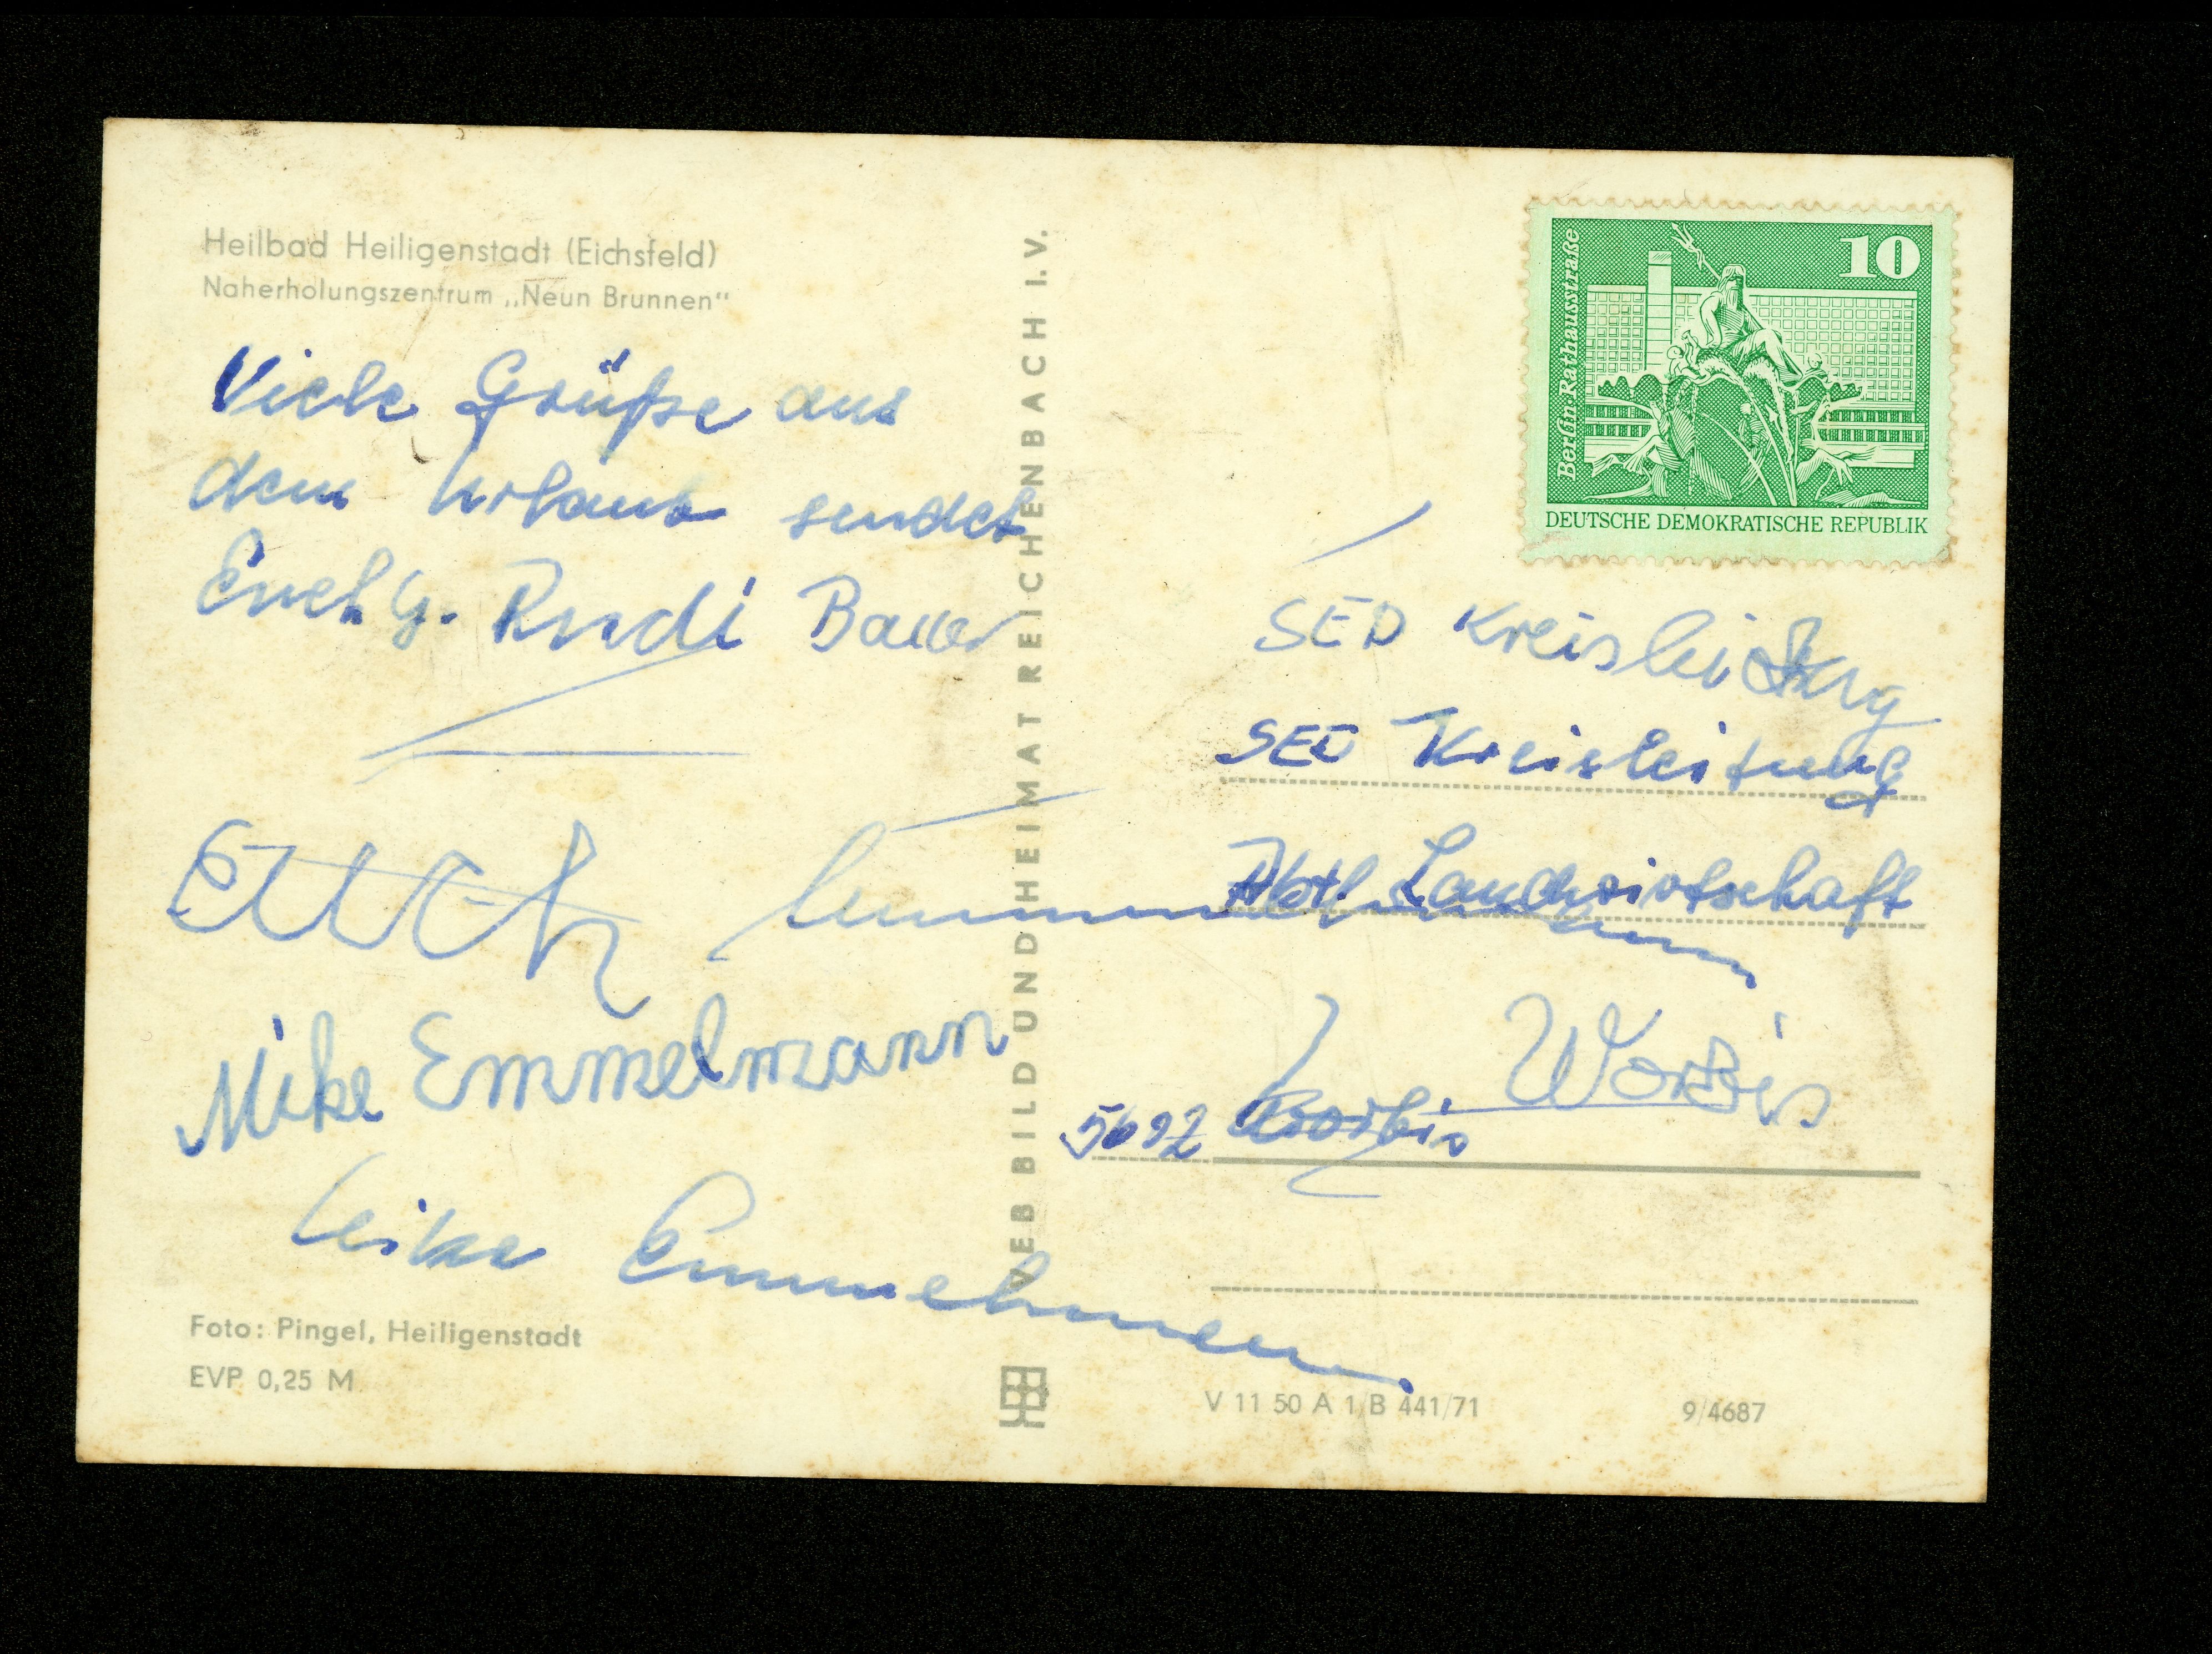 Heilbad Heiligenstadt (Eichsfeld)
Naherholungszentrum „Neun Brunnen“
Viele Grüße aus
dem Urlaub sendet
Euch G. Rudi Bauer
Euch
Mike Emmelmann
Foto: Pingel, Heiligenstadt
EVP 0,25 M
VEB BILD UND HEIMAT REICHENBACH I.V.
10
Berlin·Rathausstraße
DEUTSCHE DEMOKRATISCHE REPUBLIK
SED Kreisleitung
SED Kreisleitung
Abtl. Landwirtschaft
Worbis
Worbis
V 11 50 A 1/B 441/71
9/4687